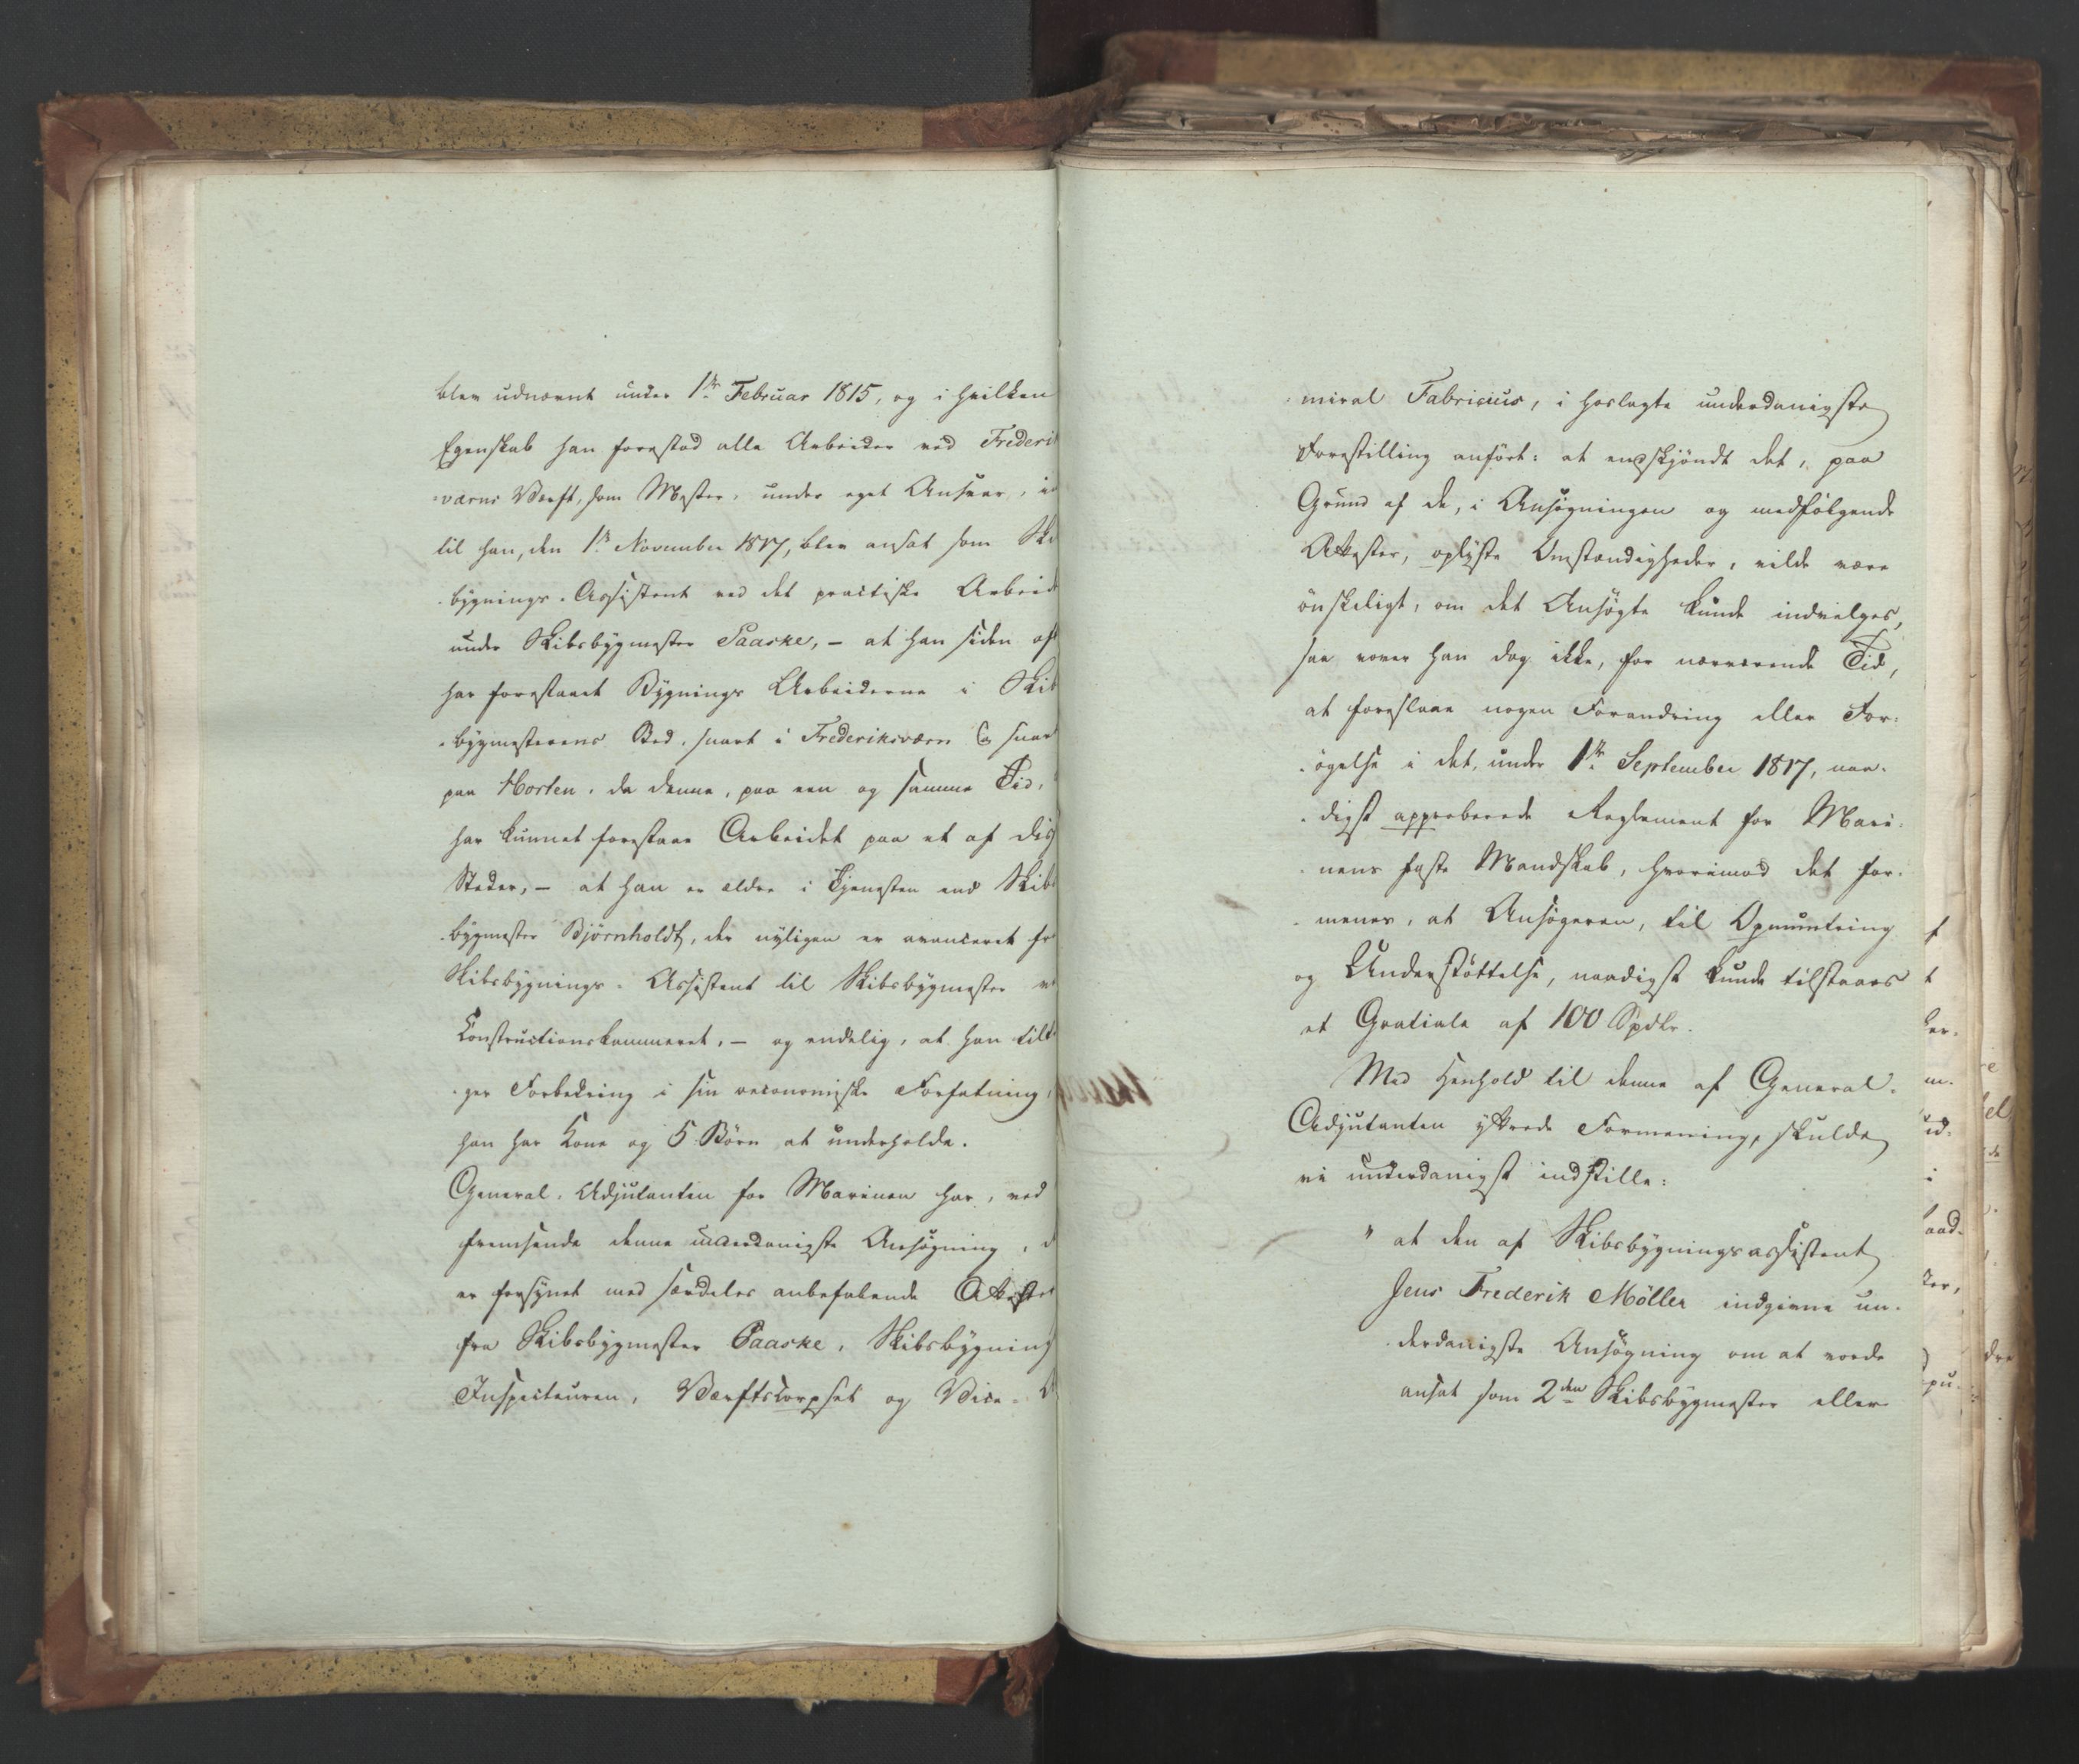 blev udnævnt under 1ste Februar 1815, og i hvilken
Egenskab han forestod alle Arbeider ved Frederi
værns Værft, som Mester, under eget Ansvar, in
til han, den 1ste November 1817, blev ansat som Ski
bygnings-Assistent ved det practiske Arbeid
under Skibsbygmester Paaske, – at han siden oft
har forestaaet Bygnings Arbeiderne i Skib
bygmesterens Sted, snart i Frederiksværn & snar
paa Horten, da denne, paa een og samme Tid,
har kunnet forestaae Arbeidet paa et af diss
Steder, – at han er ældre i Tjenesten end Skibs
bygmester Bjørnholdt, der nyligen er avanceret fr
Skibsbygnings-Assistent til Skibsbygmester v
Constructionskammeret, – og endelig, at han til
ger Forbedring i sin oeconomiske Forfatning,
han har Kone og 5 Børn at underholde.
General-Adjutanten for Marinen har, ved
fremsende denne underdanigste Ansøgning, d
er forsynet med særdeles anbefalende Atteste
fra Skibsbygmester Paaske, Skibsbygning
Inspecteuren, Værftscorpset og Vice-
miral Fabricius, i hoslagte underdanigste
Forestilling anført: at endskjøndt det, paa
Grund af de, i Ansøgningen og medfølgende
Attester, oplyste Omstændigheder, vilde være
ønskeligt, om det Ansøgte kunde indvilges,
saa vover han dog ikke, for nærværende Tid,
at foreslaae nogen Forandring eller For-
øgelse i det, under 1ste September 1817, naa-
digst approberede Reglement for Mari-
nens faste Mandskab, hvorimod det for-
menes, at Ansøgeren, til Opmuntring
og Understøttelse, naadigst kunde tilstaaes
et Gratiale af 100 Spdlr.
Med Henhold til denne af General-
Adjutanten yttrede Formening, skulde
vi underdanigst indstille:
" at den af Skibsbygningsassistent
Jens Frederik Møller indgivne un-
derdanigste Ansøgning om at vorde
ansat som 2den Skibsbygmester eller